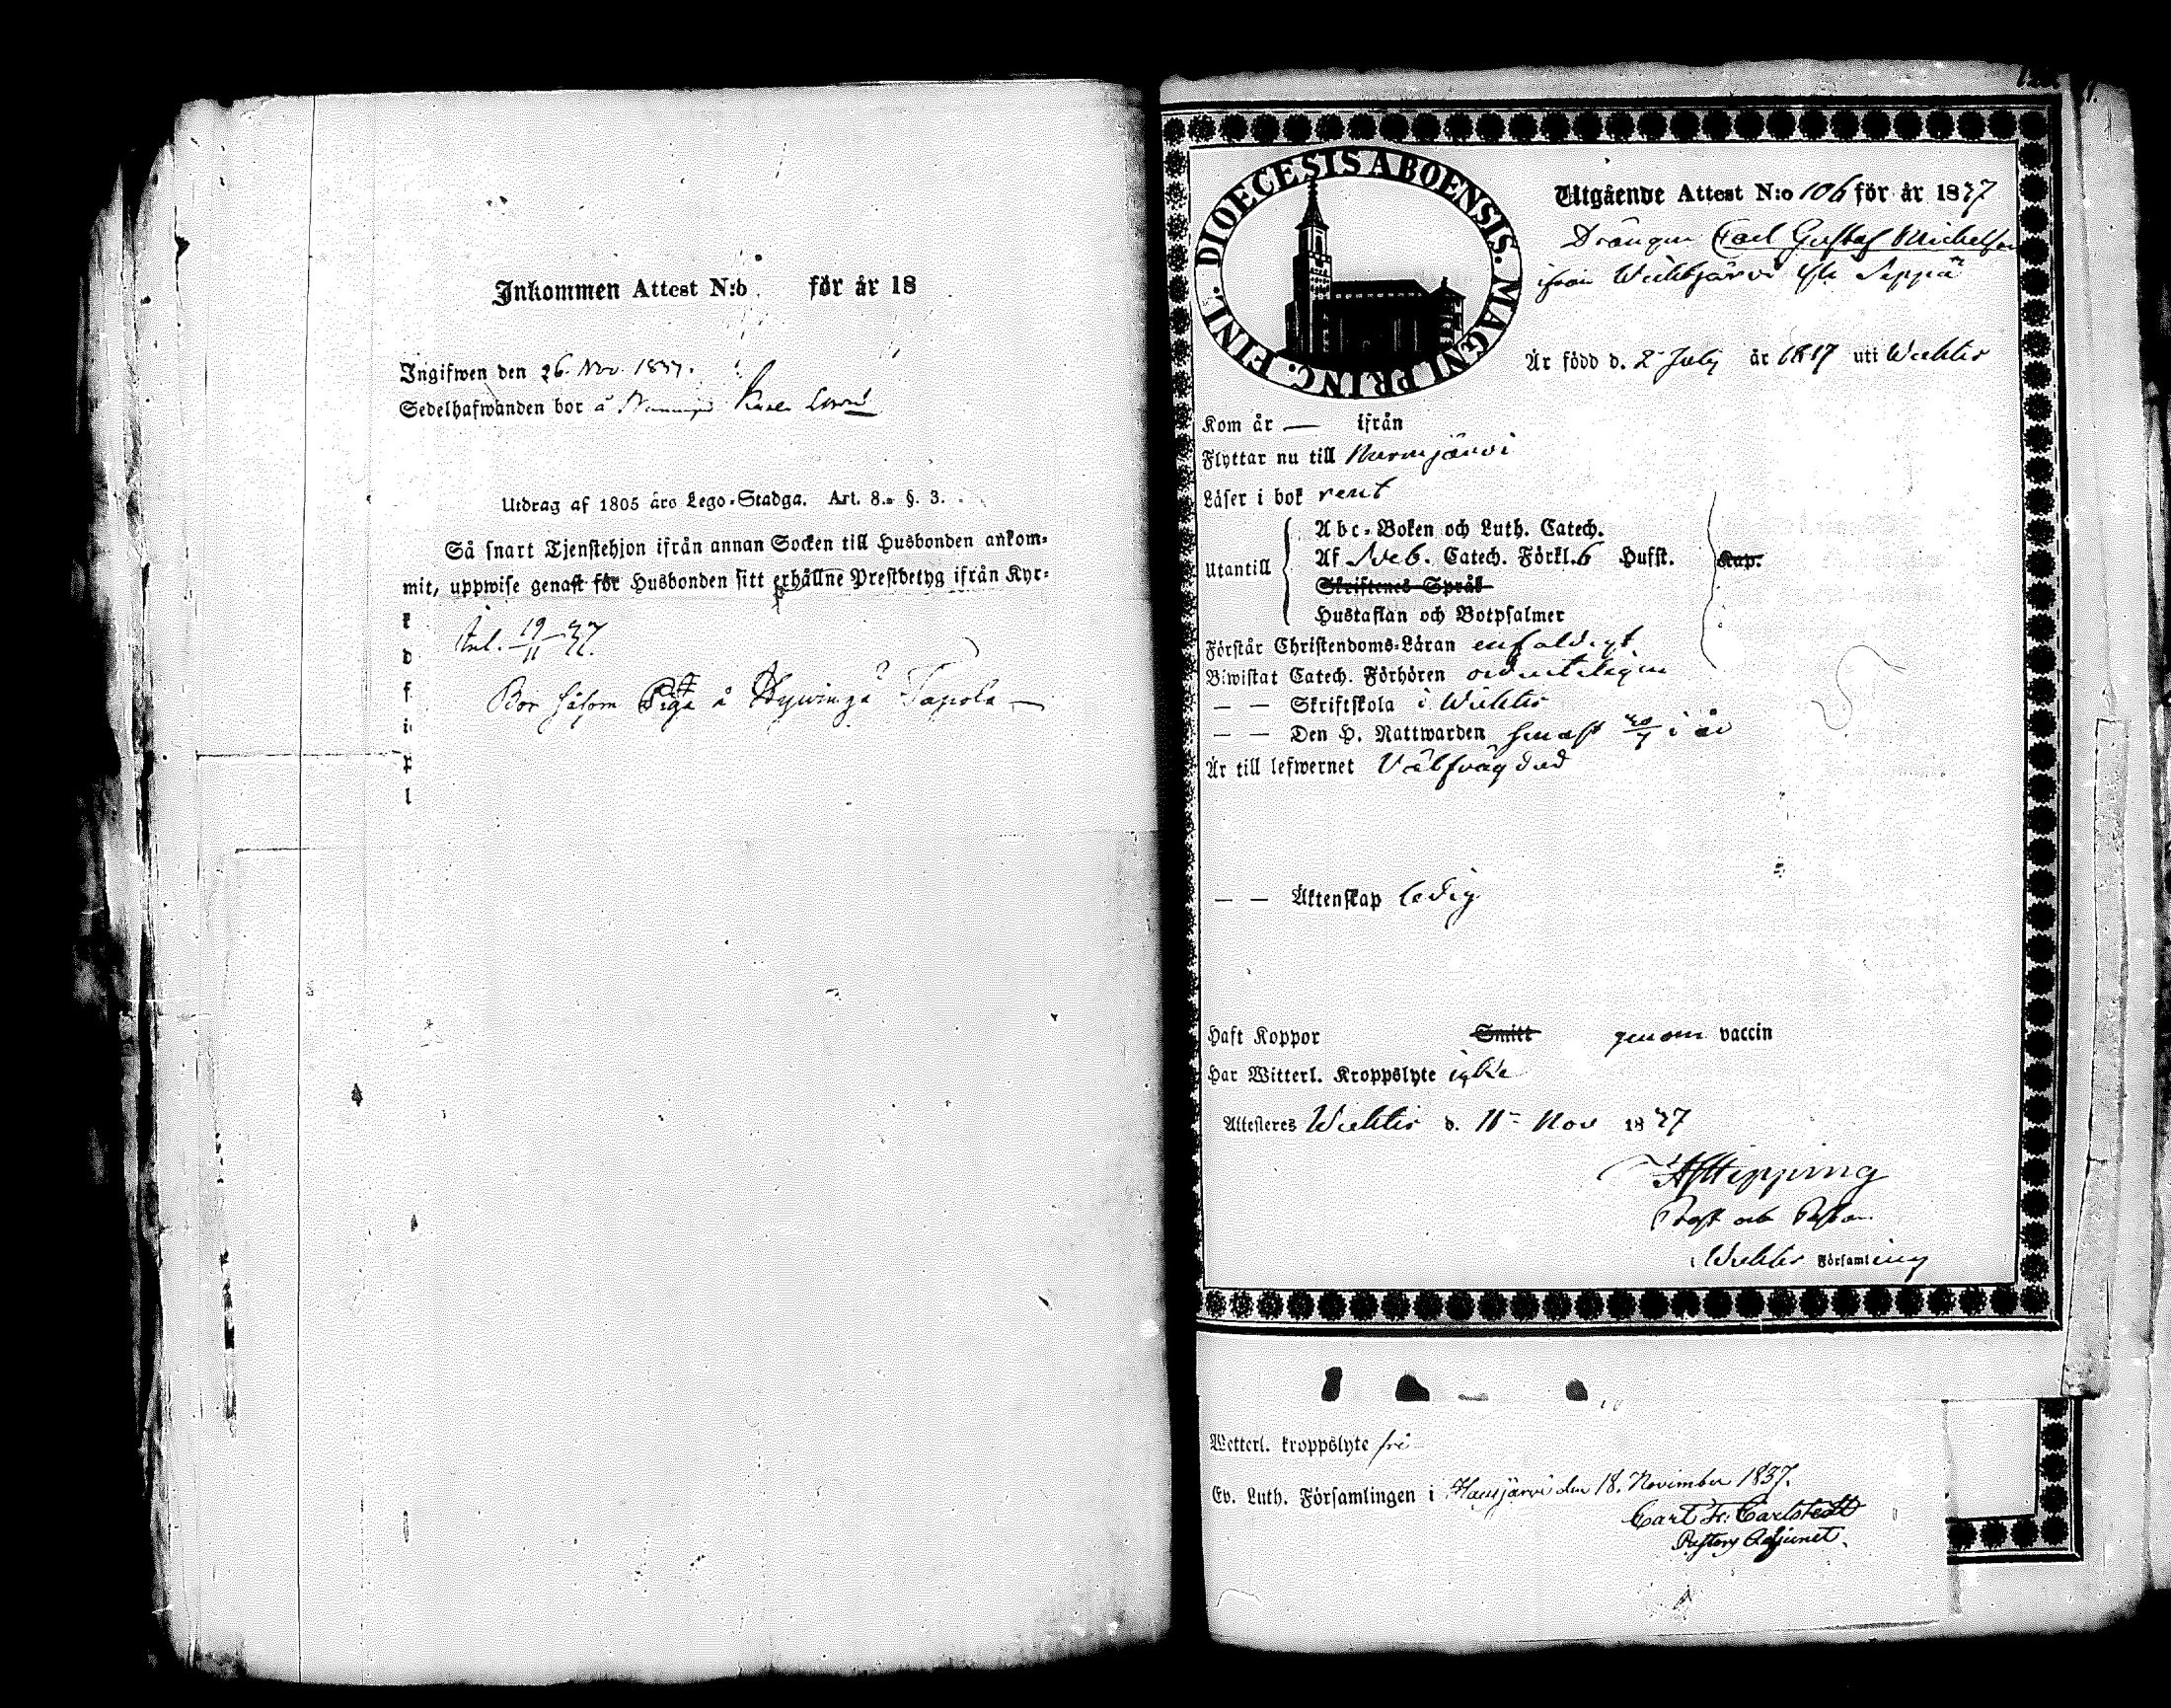 Inkommen Attest N:o för år 18
Ingifwen den 26. Nov. 1837.
Sedelhafwanden bor å
Utdrag af 1805 års Lego-Stadga. Art. 8. §. 3.
Så snart Tjenstehjon ifrån annan Socken till Husbonden ankom-
mit, uppwise genast för Husbonden sitt erhållne Prestbetyg ifrån Kyr-
k
d
f
i
p
l
Inl. 19/11 37.
Bor såsom Piga å Hywinga Tapola
DIOECESIS ABOENSIS. MAGNI PRINC. FINL.
Utgående Attest N:o 106 för år 1837
Drängen Carl Gustaf Michelsson
ifrån Wichtjärvi Seppä
Är född d. 2 July år 1817 uti Wichtis
Kom år — ifrån
Flyttar nu till Nurmijärvi
Läser i bok rent
Utantill
Abc-Boken och Luth. Catech.
Af Sveb. Catech. Förkl. 6 Hufst. Kap.
Skriftenes Språk
Hustaflan och Botpsalmer
Förstår Christendoms-Läran enfaldigt
Biwistat Catech. Förhören ordenteligen
— — Skriftskola i Wichtis
— — Den H. Nattwarden senast i år
Är till lefwernet Välfrägdad
— — Äktenskap ledig
Haft Koppor Smitt genom vaccin
Har Witterl. Kroppslyte icke
Attesteres Wichtis d. 11 Nov 1837
Hipping
Prost och Pastor
i Wichtis Församling
Wetterl. kroppslyte fri
Ev. Luth. Församlingen i Hausjärvi den 18. November 1837.
Carl Fr. Carlstedt
Pastors Adjunct.